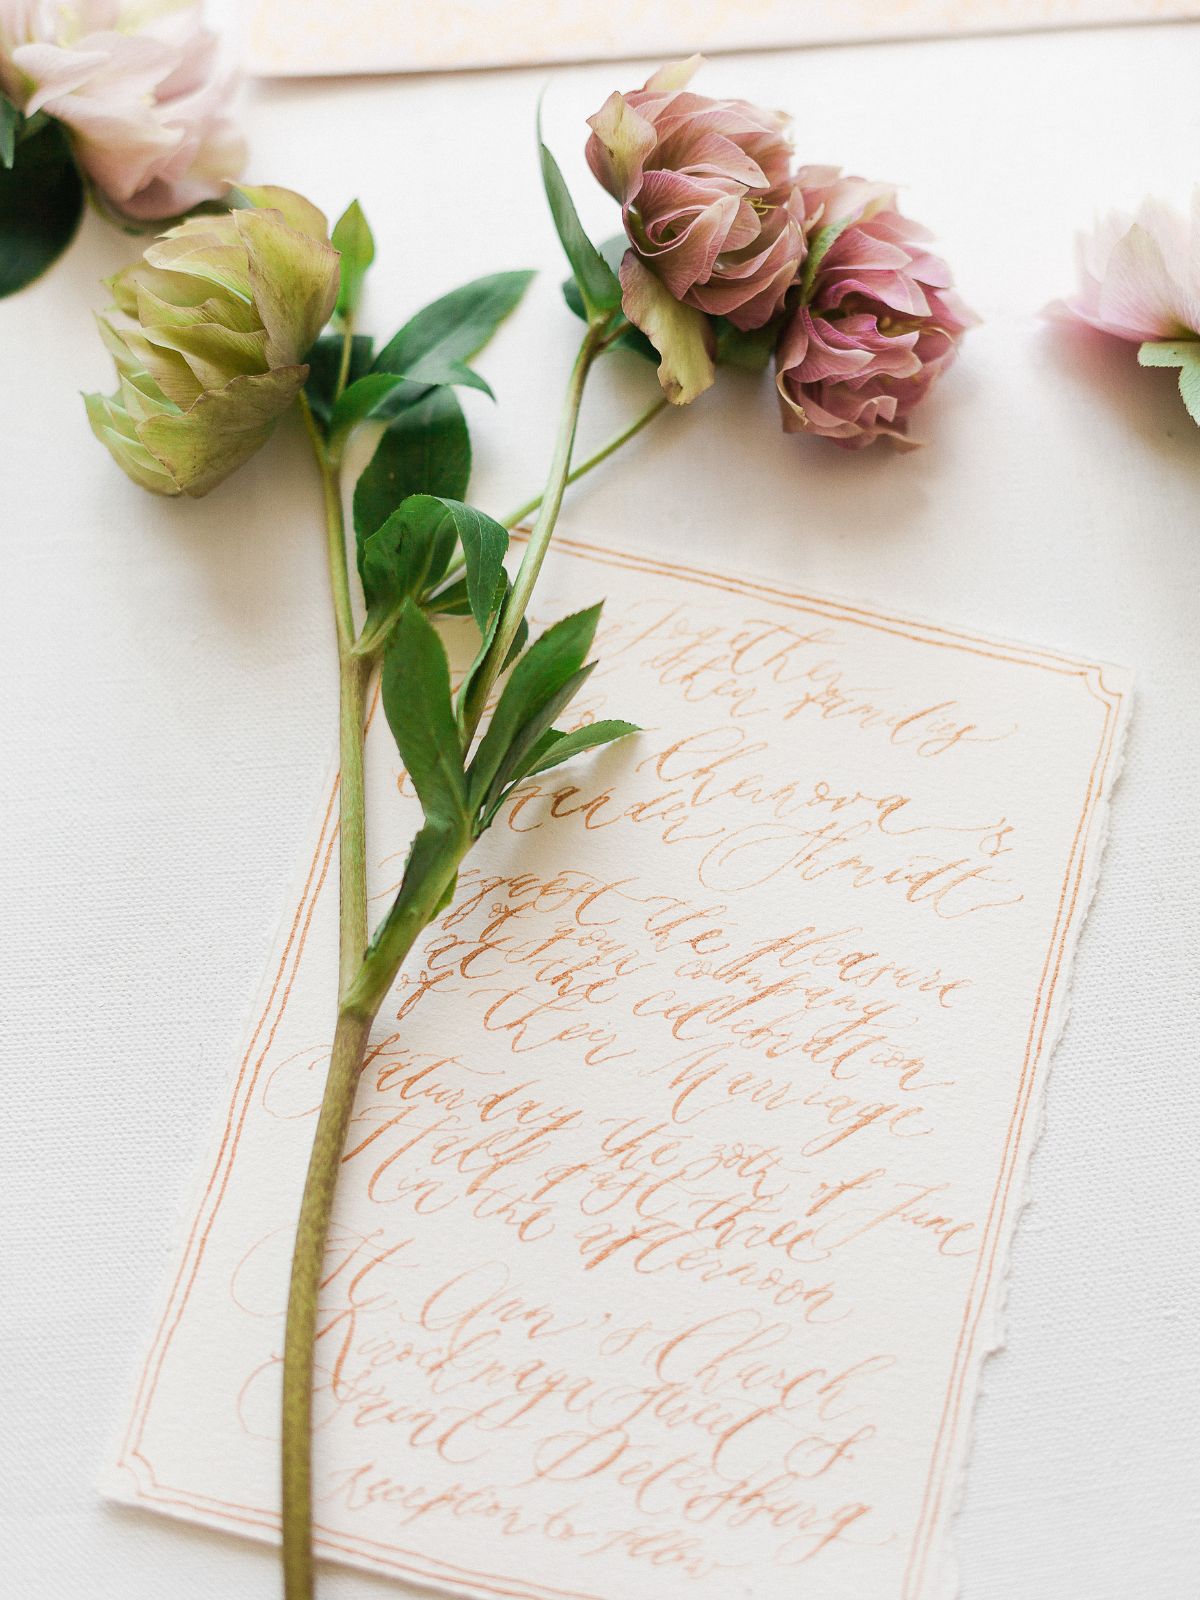 Together
their families
Chernova &
ander Shmidt
request the pleasure
of your company
at the celebration
of their Marriage
Saturday the 30th of June
Half past three
in the afternoon
St Ann's Church
Kirochnaya street 8
Saint Petersburg
reception to follow